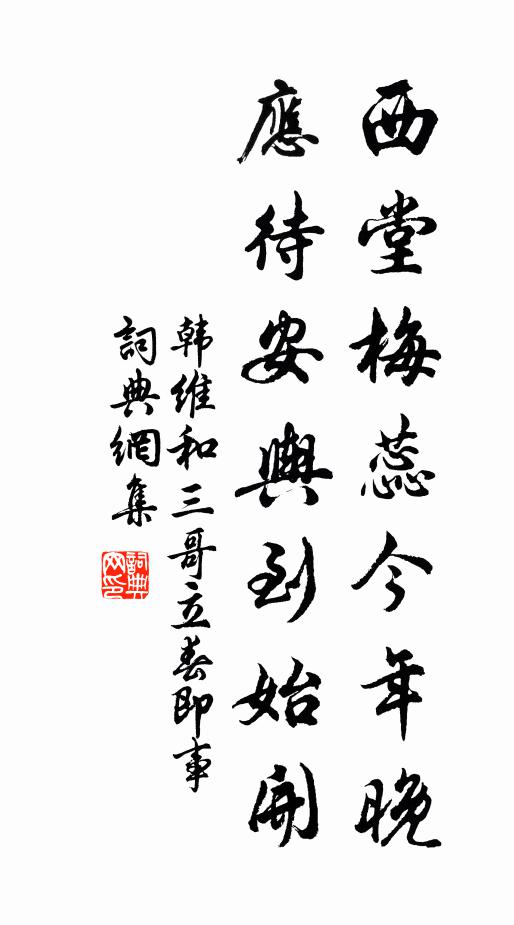 西堂梅蕊今年晚
應待安輿到始開
韩维和三哥立春即事
詞典網集
詞典网印